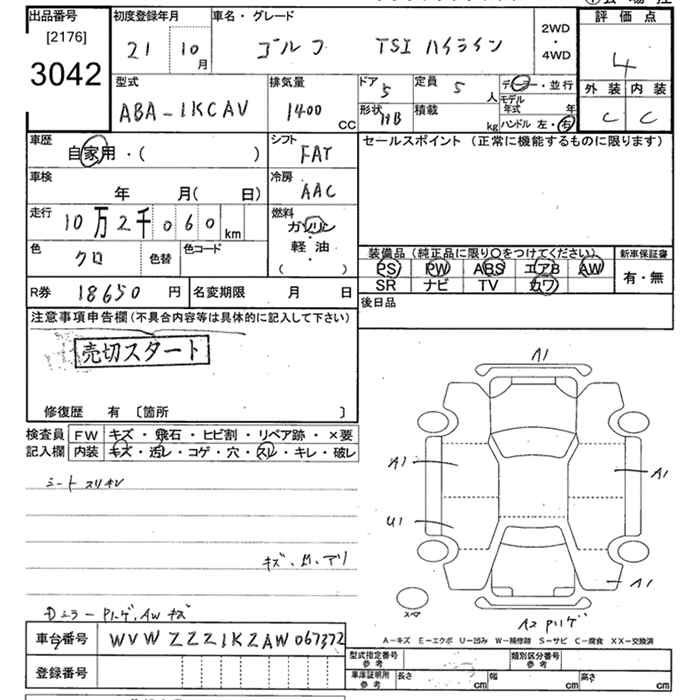 出品番号
[2176]
3042
初度登録年月
21 10月
車名・グレード
ゴルフ TSI ハイライン
2WD
・
4WD
評価点
4
外装 内装
C C
型式
ABA-1KCAV
排気量
1400 CC
ドア 5
定員 5 人
ディーラー・並行
モデル年式 年
形状 HB
積載 kg
ハンドル 左・右
車歴
自家用・( )
シフト
FAT
セールスポイント (正常に機能するものに限ります)
車検
年 月( 日)
冷房
AAC
走行
10万2千060km
燃料
ガソリン
軽・油
( )
色
クロ
色替
色コード
装備品(純正品に限り○をつけてください)
新車保証書
PS PW ABS エアB AW
SR ナビ TV カワ
有・無
R券 18650円
名変期限 月 日
後日品
注意事項申告欄(不具合内容等は具体的に記入して下さい)
売切スタート
修復歴 有 〔箇所 〕
検査員記入欄
FW キズ・飛石・ヒビ割・リペア跡・×要
内装 キズ・汚レ・コゲ・穴・スレ・キレ・破レ
シート スリキレ
Dミラー ハゲ、AW キズ
A1
A1
A1
U1
A1
スペア
A2
A-キズ E-エクボ U-凹み W-補修跡 S-サビ C-腐食 XX-交換済
車台番号 WVWZZZ1KZAW067372
登録番号
型式指定番号 参考
類別区分番号 参考
車庫証明用 参考
長さ cm
幅 cm
高さ cm